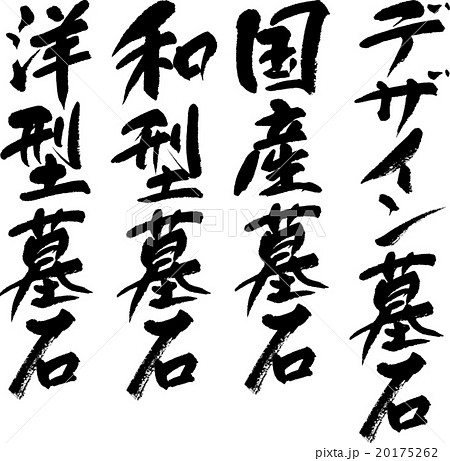 デザイン墓石
国産墓石
和型墓石
洋型墓石
PIXTA
pixta.jp - 20175262